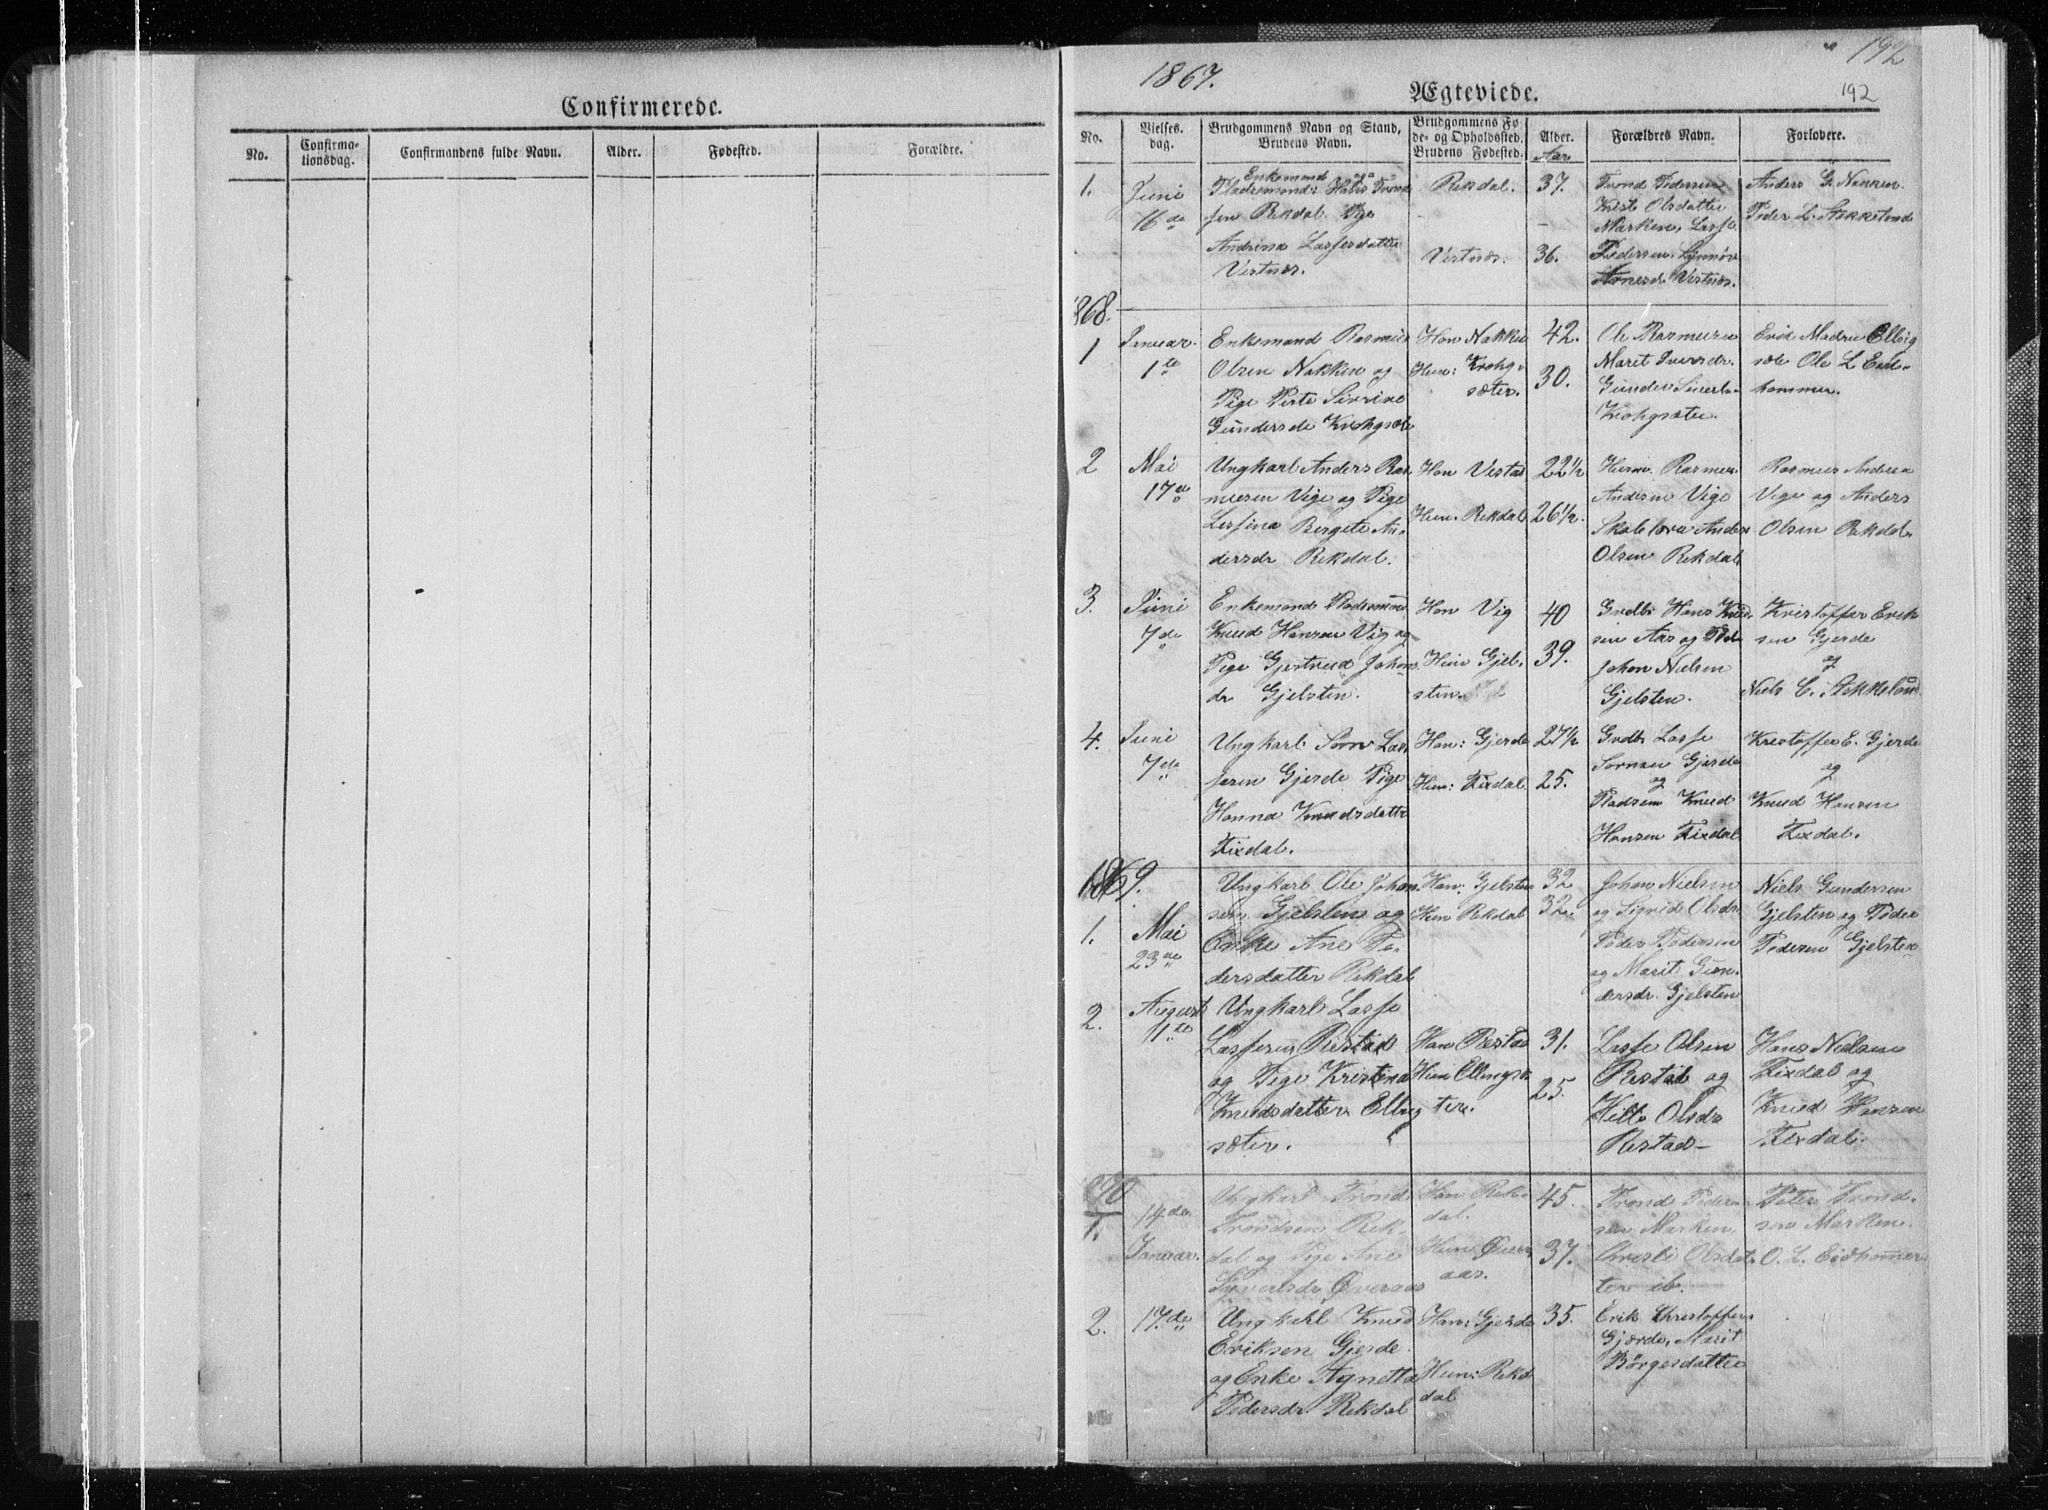 Confirmerede.
No.
Confirma-
tionsdag.
Confirmandens fulde Navn.
Alder.
Fødested.
Forældre.
192
1867.
Ægteviede.
192
No.
Vielses-
dag.
Brudgommens Navn og Stand,
Brudens Navn.
Brudgommens Fø
de- og Opholdssted.
Brudens Fødested.
Alder.
Aar
Forældres Navn.
Forlovere.
1.
Juni
16de
Enkemand og
Pladsmand: Hans Trond
sen Rekdal Pige
Andrina Lassesdatter
Vestnæs.
Rekdal.
Vestnæs.
37.
36.
Trond Pedersen
Olsdatter
Marken, Lasse
Pedersen
Vestnæs.
Anders G. Nakken
Peder L. Stokkeland
1868.
1
Januar
1te
Enkemand Rasmus
Olsen Nakken og
Pige Perte Sivrine
Gundersdr Krohgsæte
Han Nakken
Hun: Krohg-
sæter.
42.
30.
Ole Rasmusen
Marit Iversdr.
Gunder
Krohgsæter.
Erik Madsen Elling
sæte Ole L. Eid-
hammer.
2
Mai
17de
Ungkarl Anders Ras-
musen Vige og Pige
Lessina Bergete An-
dersdr Rekdal.
Han Vestad
Hun. Rekdal
22½
26½.
Husm. Rasmus
Andersen Vige
Skolelærer Anders
Olsen Rekdal
Rasmus Andersen
Vige og Anders
Olsen Rekdal.
3.
Juni
7de
Enkemand Pladsmand
Knud Hansen Vig og
Pige Gjertrud Johans
dr Gjelsten.
Han Vig
Hun Gjel-
sten.
40
39.
Grdbr. Hans Knud
sen Aas og
Johan Nielsen
Gjelsten.
Kristoffer Erik
sen Gjerde
og
Niels C. Stokkeland
4.
Juni
7de
Ungkarl Sørn Las-
sesen Gjerde Pige
Hanna Knudsdatter
Fixdal.
Han: Gjerde
Hun: Fixdal
27½
25.
Grdbr Lasse
Sørnsen Gjerde
og
Pladsm Knud
Hansen Fixdal
Kristoffer E. Gjerde
og
Knud Hansen
Fixdal.
1869.
1.
Mai
23de
Ungkarl Ole Johan-
sen Gjelsten og
Enke Ane Pe-
dersdatter Rekdal
Han: Gjelsten
Hun Rekdal
32
32.
Johan Nielsen
og Sigrid Olsdr.
Peder Pedersen
og Marit Gun-
dersdr. Gjelsten
Niels Gundersen
Gjelsten og Peder
Pedersen Gjelsten
2.
August
1te
Ungkarl Lasse
Lassesen Restad
og Pige Kristina
Knudsdatter Elling
sæter.
Han Restad
Hun Ellingsæ
ter.
31.
25.
Lasse Olsen
Restad og
Olsdr
Restad-
Hans Nielsen
Fixdal og
Knud Hansen
Fixdal.
1870
1.
14de
Januar.
Ungkarl Trond
Trondsen Rek-
dal og Pige Ane
Syversdr Øveraas
Han Rek-
dal.
Hun Øver
aas.
45.
37.
Trond Peder-
sen Marken
Christi Olsdat-
ter ib.
Peter Trond-
sen Marken.
O. L. Eidhammer
2.
17de
Ungkarl Knud
Eriksen Gjerde
og Enke Agnetta
Pedersdr. Rekdal
Han: Gjerde
Hun: Rek
dal
35.
Erik Christoffers
Gjærde, Marit
Børgesdatter